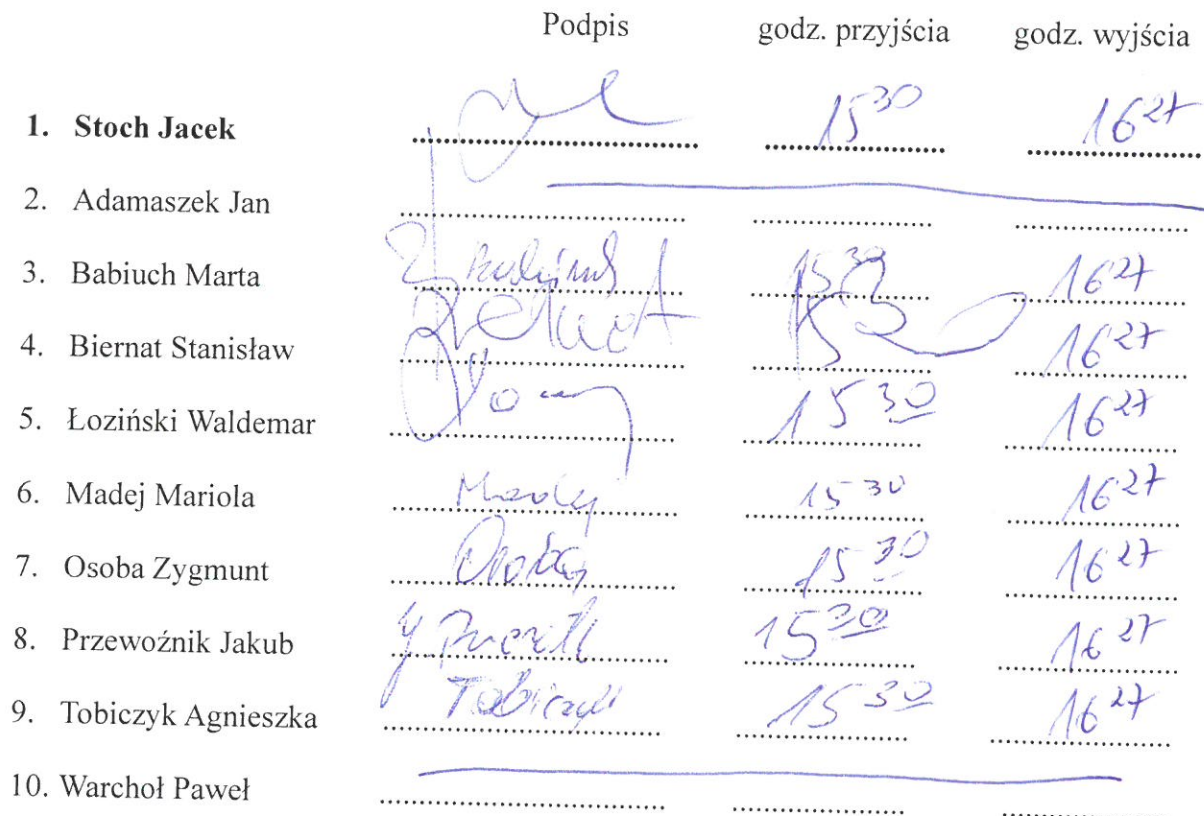 Podpis godz. przyjścia godz. wyjścia
1. Stoch Jacek 15³⁰ 16²⁷
2. Adamaszek Jan
3. Babiuch Marta 15³⁰ 16²⁷
4. Biernat Stanisław 15³⁰ 16²⁷
5. Łoziński Waldemar 15³⁰ 16²⁷
6. Madej Mariola Madej 15³⁰ 16²⁷
7. Osoba Zygmunt Osoba 15³⁰ 16²⁷
8. Przewoźnik Jakub 15³⁰ 16²⁷
9. Tobiczyk Agnieszka Tobiczyk 15³⁰ 16²⁷
10. Warchoł Paweł